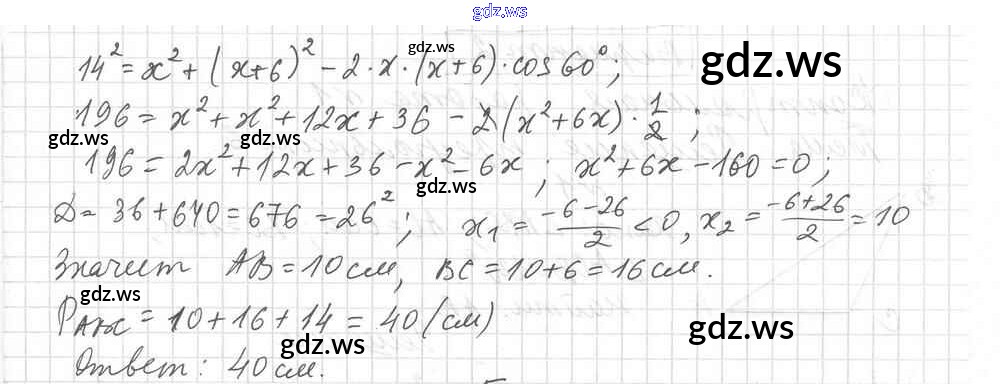 gdz.ws
14² = x² + (x+6)² − 2·x·(x+6)·cos 60°;
gdz.ws
gdz.ws
196 = x² + x² + 12x + 36 − 2(x²+6x)·1/2;
gdz.ws
gdz.ws
196 = 2x² + 12x + 36 − x² − 6x; x² + 6x − 160 = 0;
gdz.ws
D = 36 + 640 = 676 = 26²; x₁ = (−6−26)/2 < 0, x₂ = (−6+26)/2 = 10
Значит AB = 10 см, BC = 10 + 6 = 16 см.
gdz.ws
P_ABC = 10 + 16 + 14 = 40 (см)
gdz.ws
gdz.ws
Ответ: 40 см.